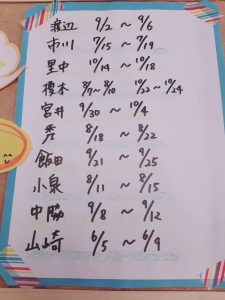 渡辺 9/2 ～ 9/6
市川 7/15 ～ 7/19
里中 10/14 ～ 10/18
榎本 8/7～8/10 10/22～10/24
宮井 9/30 ～ 10/4
秀 8/18 ～ 8/22
飯田 9/21 ～ 9/25
小泉 8/11 ～ 8/15
中脇 9/8 ～ 9/12
山崎 6/5 ～ 6/9